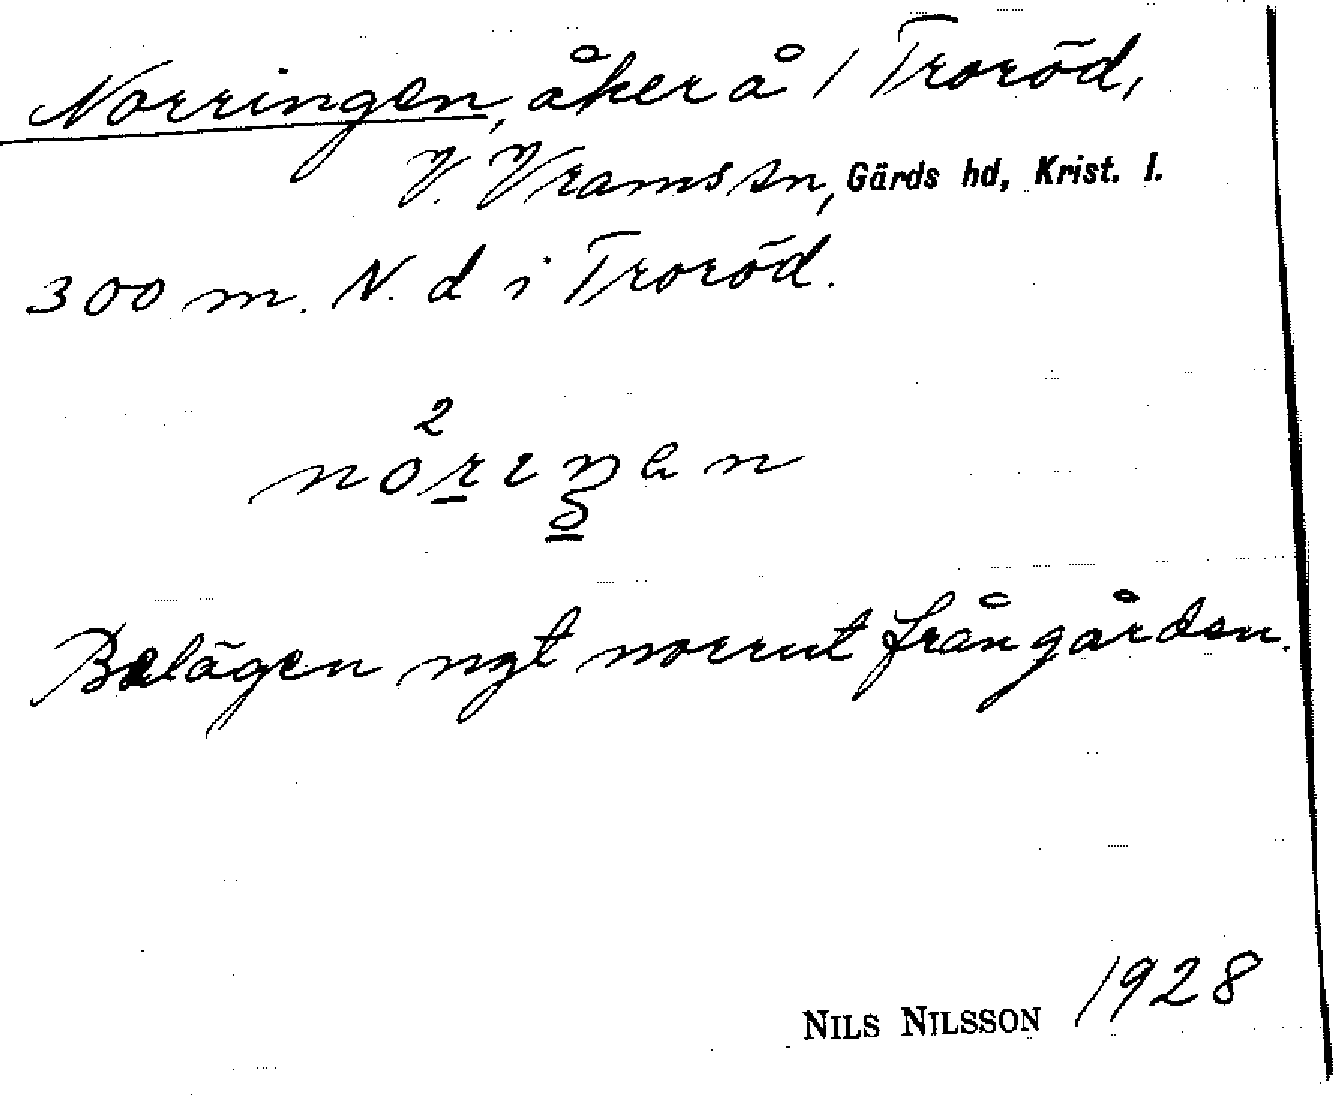 Norringen, åker å 1 Troröd,
V. Vrams sn, Gärds hd, Krist. l.
300 m. N. d i Troröd.
2
norengen
Belägen ngt norrut från gården.
NILS NILSSON 1928